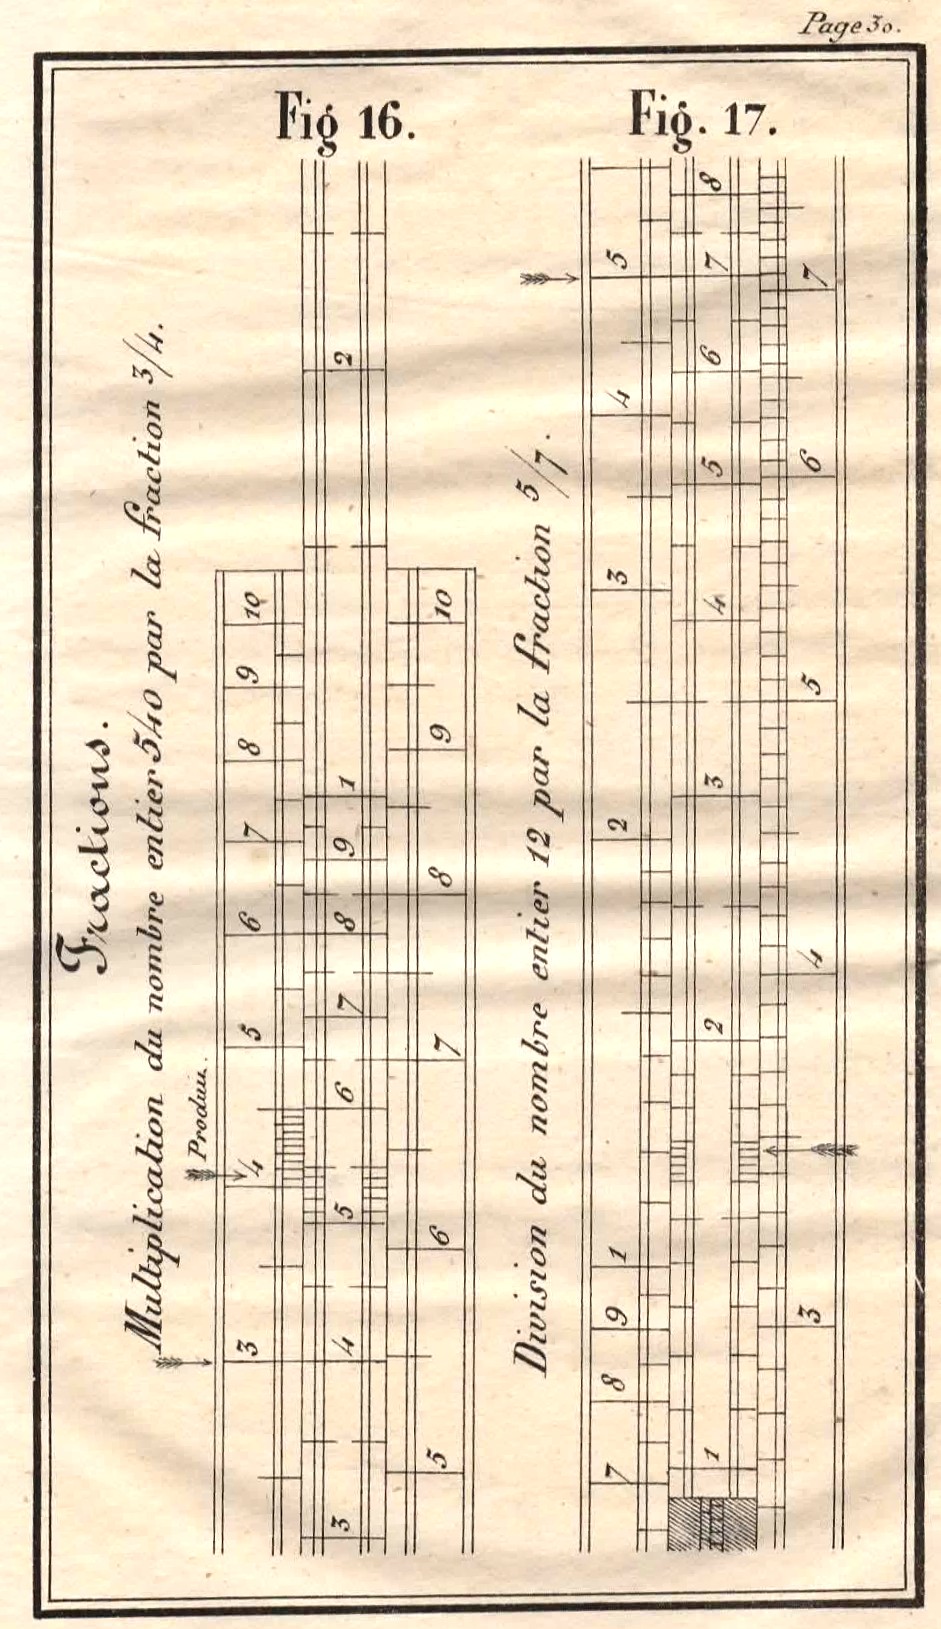 Page 30.
Fractions.
Fig 16.
Multiplication du nombre entier 540 par la fraction 3/4.
Produit.
3 4 5 6 7 8 9 10
3 4 5 6 7 8 9 1 2
5 6 7 8 9 10
Fig. 17.
Division du nombre entier 12 par la fraction 5/7.
7 8 9 1 2 3 4 5
1 2 3 4 5 6 7 8
3 4 5 6 7